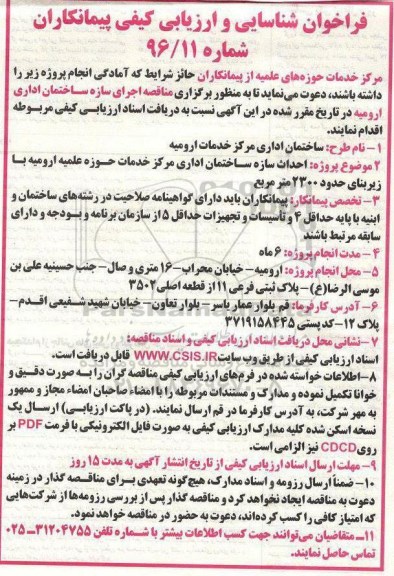 فراخوان شناسایی و ارزیابی کیفی پیمانکاران
شماره ۹۶/۱۱
مرکز خدمات حوزه‌های علمیه از پیمانکاران حائز شرایط که آمادگی انجام پروژه زیر را
داشته باشند، دعوت می‌نماید تا به منظور برگزاری مناقصه اجرای سازه ساختمان اداری
ارومیه در تاریخ مقرر شده در این آگهی نسبت به دریافت اسناد ارزیابی کیفی مربوطه
اقدام نمایند.
۱- نام طرح: ساختمان اداری مرکز خدمات ارومیه
۲ موضوع پروژه: احداث سازه ساختمان اداری مرکز خدمات حوزه علمیه ارومیه با
زیربنای حدود ۲۳۰۰ متر مربع
۳- تخصص پیمانکار: پیمانکاران باید دارای گواهینامه صلاحیت در رشته‌های ساختمان و
ابنیه با پایه حداقل ۴ و تأسیسات و تجهیزات حداقل ۵ از سازمان برنامه و بودجه و دارای
سابقه مرتبط باشند
۴- مدت انجام پروژه: ۶ ماه
۵- محل انجام پروژه: ارومیه- خیابان محراب- ۱۶ متری وصال- جنب حسینیه علی بن
موسی الرضا(ع)- پلاک ثبتی فرعی ۱۱ از قطعه اصلی ۳۵۰۲
۶- آدرس کارفرما: قم بلوار عمار یاسر- بلوار تعاون- خیابان شهید شفیعی اقدم-
پلاک ۱۲- کد پستی ۳۷۱۹۱۵۸۴۴۵
۷- نشانی محل دریافت اسناد ارزیابی کیفی و اسناد مناقصه:
اسناد ارزیابی کیفی از طریق وب سایت WWW.CSIS.IR قابل دریافت است.
۸- اطلاعات خواسته شده در فرم‌های ارزیابی کیفی مناقصه گران را به صورت دقیق و
خوانا تکمیل نموده و مدارک و مستندات مربوطه را با امضاء صاحبان امضاء مجاز و ممهور
به مهر شرکت، به آدرس کارفرما در قم ارسال نمایند. (در پاکت ارزیابی) ارسال یک
نسخه اسکن شده کلیه مدارک ارزیابی کیفی به صورت فایل الکترونیکی با فرمت PDF بر
روی CDCD نیز الزامی است.
۹- مهلت ارسال اسناد ارزیابی کیفی از تاریخ انتشار آگهی به مدت ۱۵ روز
۱۰- ضمناً ارسال رزومه و اسناد مدارک، هیچ‌گونه تعهدی برای مناقصه گذار در زمینه
دعوت به مناقصه ایجاد نخواهد کرد و مناقصه گذار پس از بررسی رزومه‌ها از شرکت‌هایی
که امتیاز کافی را کسب کرده‌اند، دعوت به حضور در مناقصه خواهد نمود.
۱۱- متقاضیان می‌توانند جهت کسب اطلاعات بیشتر با شماره تلفن ۳۱۲۰۴۷۵۵- ۰۲۵
تماس حاصل نمایند.